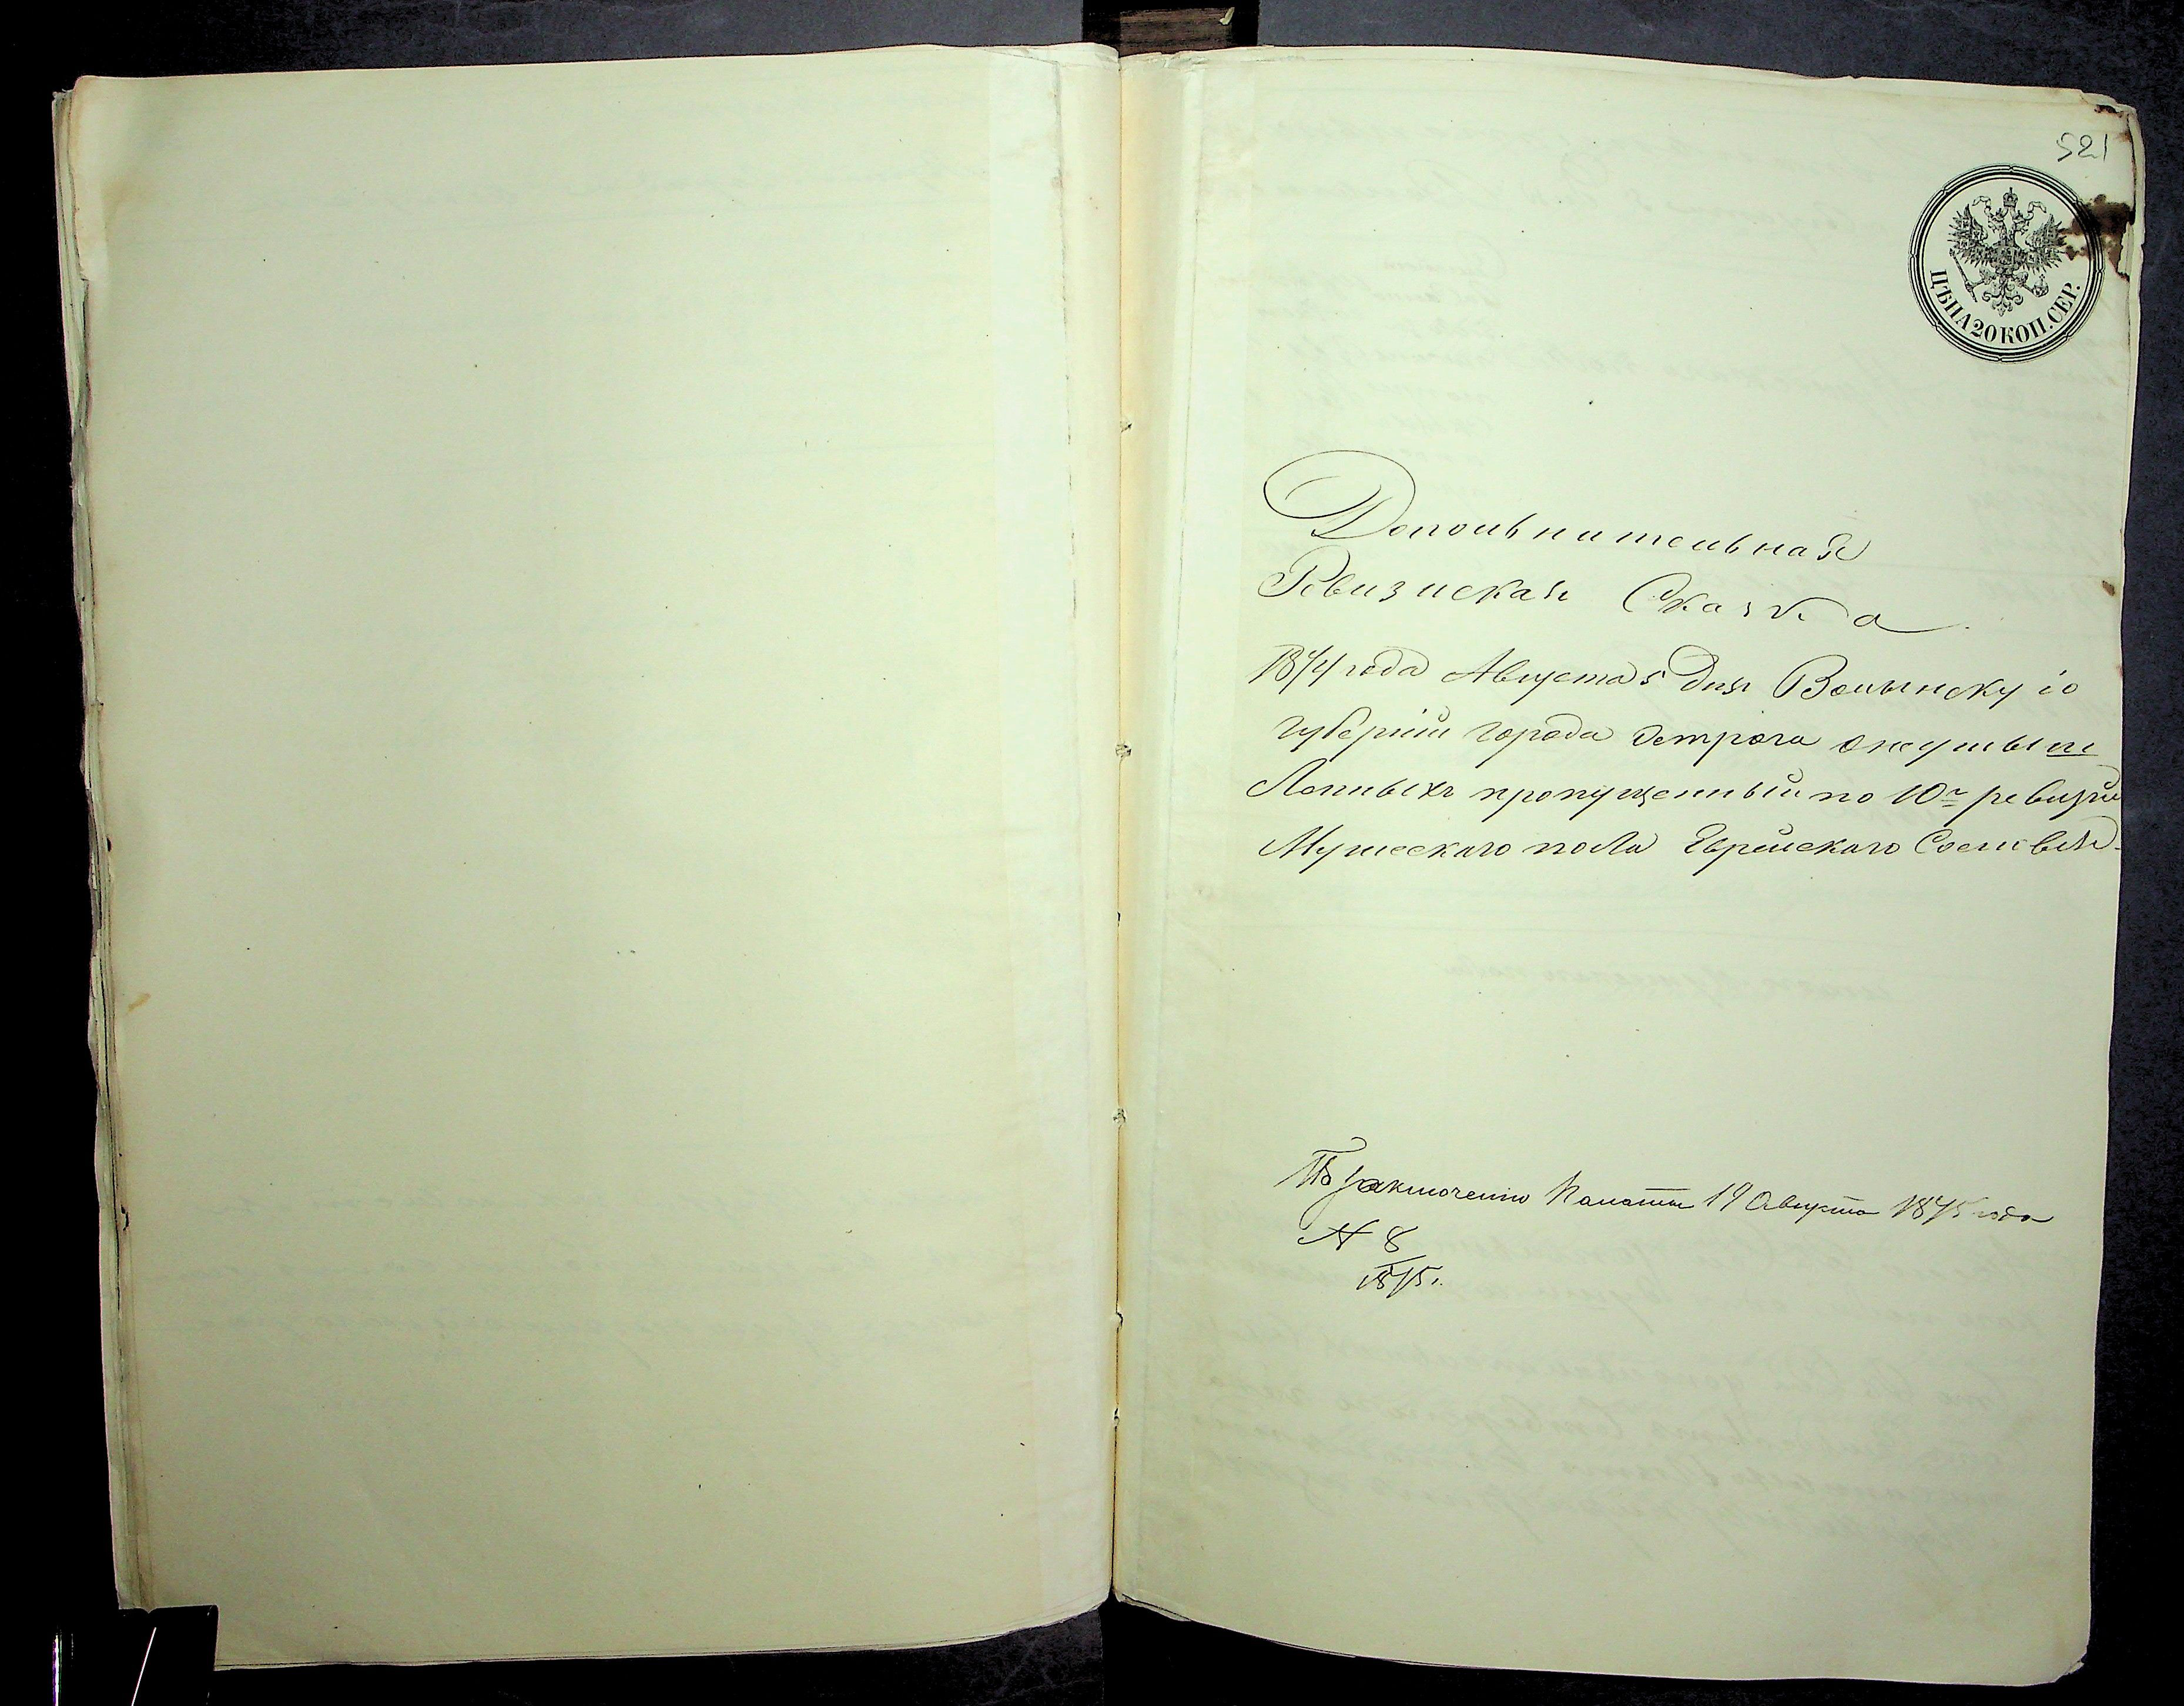 521
ЦѢНА 20 КОП. СЕР.
Допольнительная
Ревизиская Сказка
1874 года Августа 5 Дня Волынскуіо
губерніи города Острога
пропущенныи по 10й ревизіи
Мужескаго пола Еврейскаго Сословія.
По заключенію Палаты 19 Августа 1875 года
№ 8
1875 г.